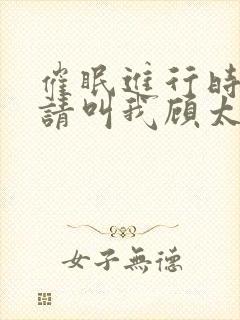 催眠進行時
請叫我顾太
女子無德